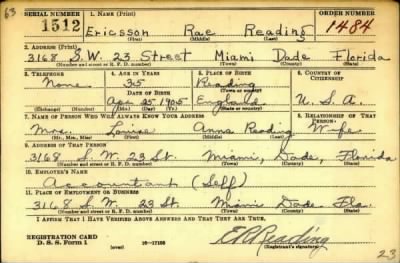 63
SERIAL NUMBER 1. NAME (Print) ORDER NUMBER
1512 Ericsson Rae Reading 1484
(First) (Middle) (Last)
2. ADDRESS (Print)
3168 S.W. 23 Street Miami Dade Florida
(Number and street or R. F. D. number) (Town) (County) (State)
3. TELEPHONE 4. AGE IN YEARS 5. PLACE OF BIRTH 6. COUNTRY OF CITIZENSHIP
None 35 Reading
DATE OF BIRTH (Town or county)
Apr 25 1905 England U.S.A.
(Exchange) (Number) (Mo.) (Day) (Yr.) (State or country)
7. NAME OF PERSON WHO WILL ALWAYS KNOW YOUR ADDRESS 8. RELATIONSHIP OF THAT PERSON
Mrs. Louise Anna Reading Wife
(Mr., Mrs., Miss) (First) (Middle) (Last)
9. ADDRESS OF THAT PERSON
3168 S.W. 23 St. Miami, Dade, Florida
(Number and street or R. F. D. number) (Town) (County) (State)
10. EMPLOYER'S NAME
Accountant (Self)
11. PLACE OF EMPLOYMENT OR BUSINESS
3168 S.W. 23 St. Miami Dade Fla.
(Number and street or R. F. D. number) (Town) (County) (State)
I AFFIRM THAT I HAVE VERIFIED ABOVE ANSWERS AND THAT THEY ARE TRUE.
REGISTRATION CARD
D. S. S. Form 1 (over) 16-17105 E R Reading
(Registrant's signature)
23